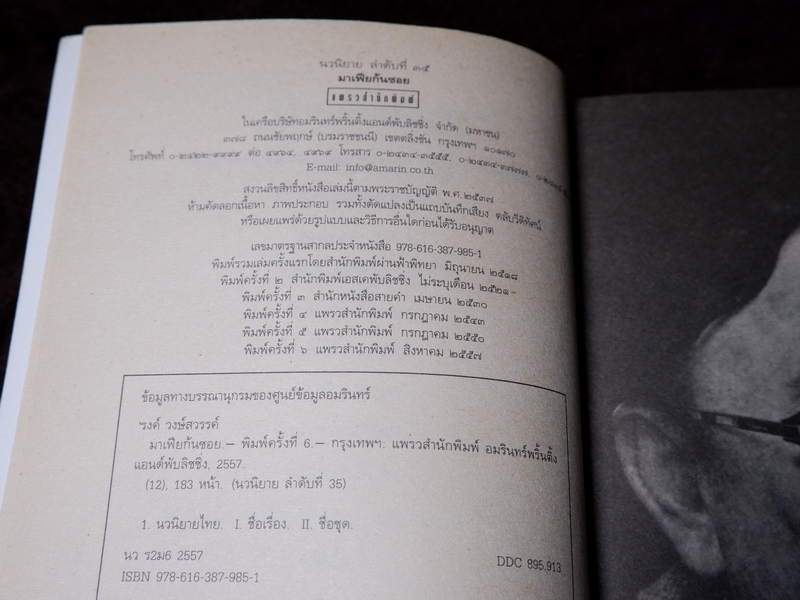 นวนิยาย ลำดับที่ ๓๕
มาเฟียก้นซอย
แพรวสำนักพิมพ์
ในเครือบริษัทอมรินทร์พริ้นติ้งแอนด์พับลิชชิ่ง จำกัด (มหาชน)
๓๗๘ ถนนชัยพฤกษ์ (บรมราชชนนี) เขตตลิ่งชัน กรุงเทพฯ ๑๐๑๗๐
โทรศัพท์ ๐-๒๔๒๒-๙๙๙๙ ต่อ ๔๙๖๔, ๔๙๖๙ โทรสาร ๐-๒๔๓๔-๓๕๕๕, ๐-๒๔๓๔-๓๗๗๗,
E-mail: info@amarin.co.th
สงวนลิขสิทธิ์หนังสือเล่มนี้ตามพระราชบัญญัติ พ.ศ. ๒๕๓๗
ห้ามคัดลอกเนื้อหา ภาพประกอบ รวมทั้งดัดแปลงเป็นแถบบันทึกเสียง ตลับวีดิทัศน์
หรือเผยแพร่ด้วยรูปแบบและวิธีการอื่นใดก่อนได้รับอนุญาต
เลขมาตรฐานสากลประจำหนังสือ 978-616-387-985-1
พิมพ์รวมเล่มครั้งแรกโดยสำนักพิมพ์ผ่านฟ้าพิทยา มิถุนายน ๒๕๑๘
พิมพ์ครั้งที่ ๒ สำนักพิมพ์เอสเคพับลิชชิ่ง ไม่ระบุเดือน ๒๕๒๑
พิมพ์ครั้งที่ ๓ สำนักหนังสือสายคำ เมษายน ๒๕๓๐
พิมพ์ครั้งที่ ๔ แพรวสำนักพิมพ์ กรกฎาคม ๒๕๔๓
พิมพ์ครั้งที่ ๕ แพรวสำนักพิมพ์ กรกฎาคม ๒๕๕๐
พิมพ์ครั้งที่ ๖ แพรวสำนักพิมพ์ สิงหาคม ๒๕๕๗
ข้อมูลทางบรรณานุกรมของศูนย์ข้อมูลอมรินทร์
'รงค์ วงษ์สวรรค์
มาเฟียก้นซอย.— พิมพ์ครั้งที่ 6.— กรุงเทพฯ: แพรวสำนักพิมพ์ อมรินทร์พริ้นติ้ง
แอนด์พับลิชชิ่ง, 2557.
(12), 183 หน้า. (นวนิยาย ลำดับที่ 35)
1. นวนิยายไทย. I. ชื่อเรื่อง. II. ชื่อชุด.
นว ร2ม6 2557
DDC 895.913
ISBN 978-616-387-985-1